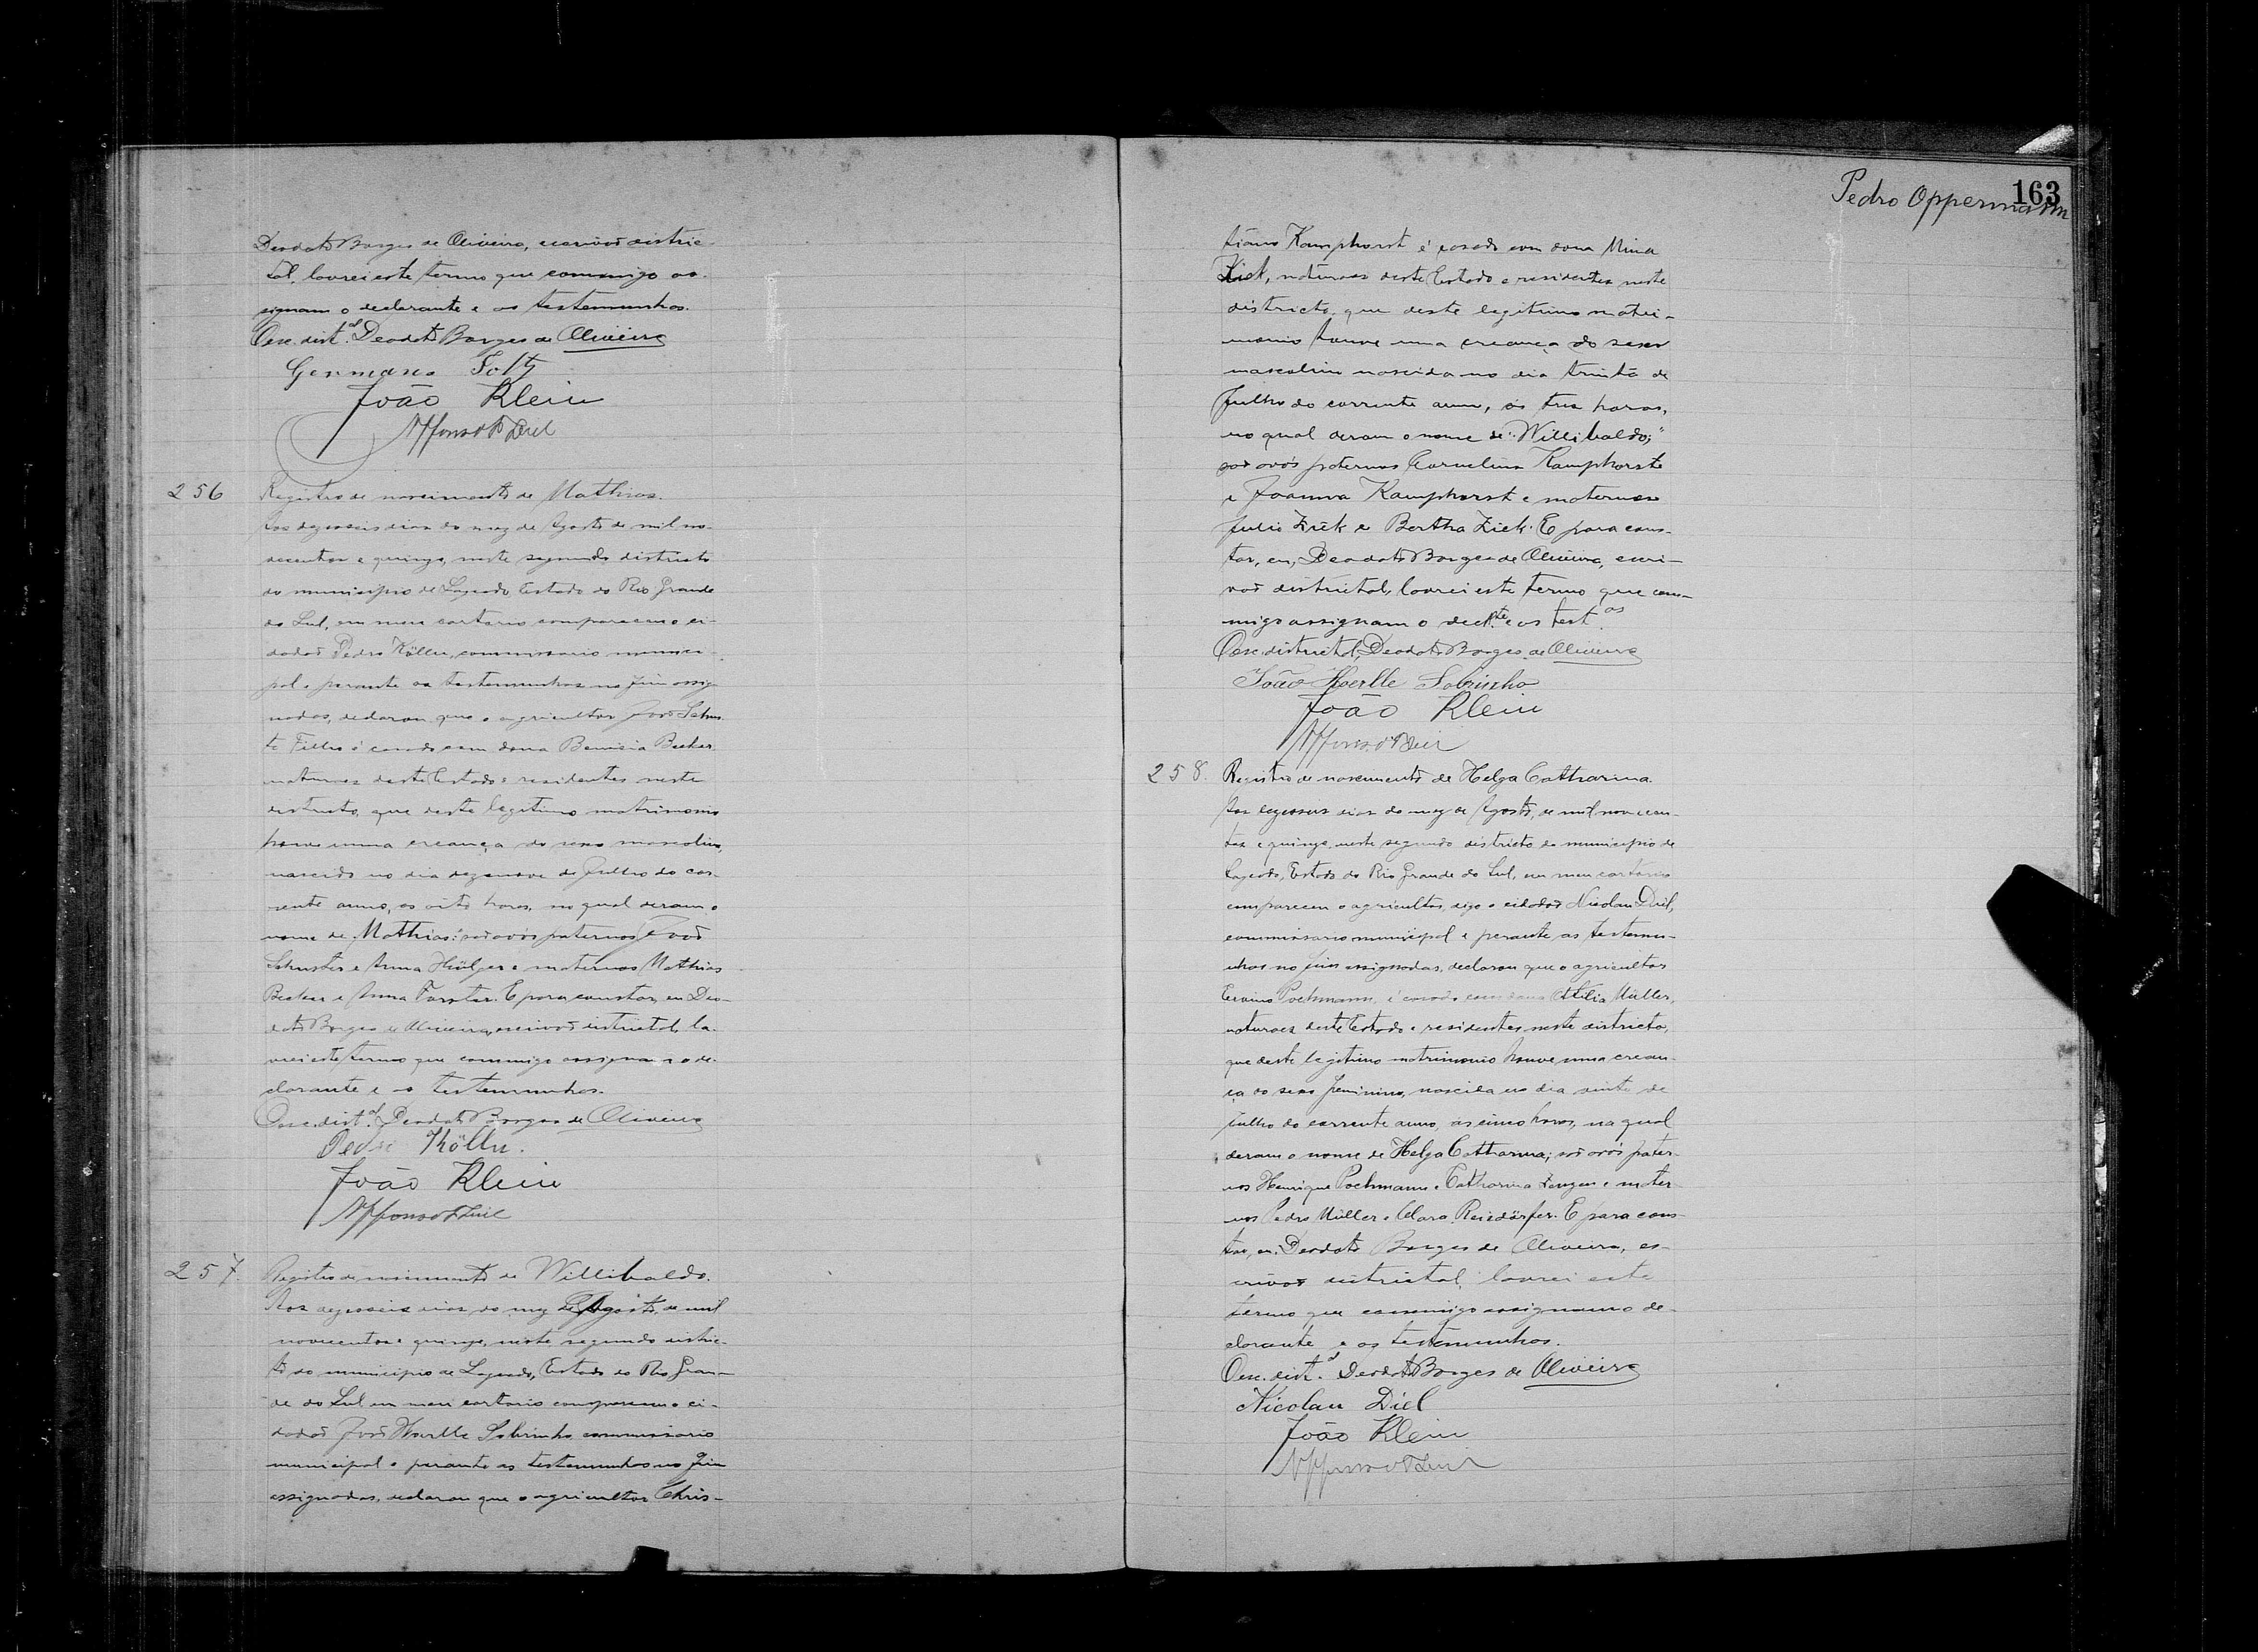 Deodato Borges de Oliveira, escrivão distric-
tal, lavrei este termo que commigo as-
signam o declarante e as testemunhas.
O esc. distal Deodato Borges de Oliveira
Germano
João Klein
Affonso Diel
256 Registro de nascimento de Mathias.
Aos dezesseis dias do mez de Agosto de mil no-
vecentos e quinze, neste segundo districto
do municipio de Lageado, Estado do Rio Grande
do Sul, em meu cartorio compareceu o ci-
dadão Pedro Köller, commissario munici-
pal e perante as testemunhas no fim assig-
nadas, declarou que o agricultor João Schus-
te Filho é casado com dona Becker
naturaes deste Estado e residentes neste
districto, que deste legitimo matrimonio
houve uma creança do sexo masculino,
nascido no dia dezenove de Julho do cor-
rente anno, as oito horas, no qual deram o
nome de Mathias: são avós paternos João
Schuster e Anna e maternos Mathias
Becker e Anna Forster. E para constar, eu Deo-
dato Borges de Oliveira, escrivão districtal, la-
vrei este termo que commigo assignam o de-
clarante e as testemunhas.
O esc. distal Deodato Borges de Oliveira
Pedro Köller.
João Klein
Affonso Diel
257. Registro de nascimento de Willibaldo.
Aos dezesseis dias do mez de Agosto, de mil
novecentos e quinze, neste segundo distric-
to do municipio de Lageado, Estado do Rio Gran-
de do Sul em meu cartorio compareceu o ci-
dadão João Hoerlle Sobrinho commissario
municipal e perante as testemunhas no fim
assignadas, declarou que o agricultor Chris-
163
Pedro Oppermann
tiano Kamphorst é casado com dona Mina
Ziek, naturaes deste Estado e residentes neste
districto, que deste legitimo matri-
monio houve uma creança do sexo
masculino nascida no dia trinta de
Julho do corrente anno, ás tres horas,
no qual deram o nome de "Willibaldo;"
são avós paternos Cornelius Kamphorst
e Joanna Kamphorst e maternos
Julio Ziek e Bertha Ziek. E para cons-
tar, eu, Deodato Borges de Oliveira, escri-
vão districtal, lavrei este termo que com-
migo assignam o declte e as testas.
O esc. districtal, Deodato Borges de Oliveira
João Hoerlle Sobrinho
João Klein
Affonso Diel
258. Registro de nascimento de Helga Catharina.
Aos dezesseis dias do mez de Agosto, de mil novecen-
tos e quinze, neste segundo districto do municipio de
Lageado, Estado do Rio Grande do Sul, em meu cartorio
compareceu o agricultor, digo o cidadão Nicolau Diel,
commissario municipal e perante as testemu-
nhas no fim assignadas, declarou que o agricultor
Ervino Pochmann, é casado com dona Ottilia Müller,
naturaes deste Estado e residentes neste districto,
que deste legitimo matrimonio houve uma crean-
ça do sexo feminino, nascida no dia vinte de
Julho do corrente anno, as cinco horas, na qual
deram o nome de Helga Catharina; são avós pater-
nos Henrique Pochmann e Catharina e mater-
nos Pedro Müller e Clara. E para cons-
tar, eu, Deodato Borges de Oliveira, es-
crivão districtal, lavrei este
termo que commigo assignam o de-
clarante e as testemunhas.
O esc. distal Deodato Borges de Oliveira
Nicolau Diel
João Klein
Affonso Diel